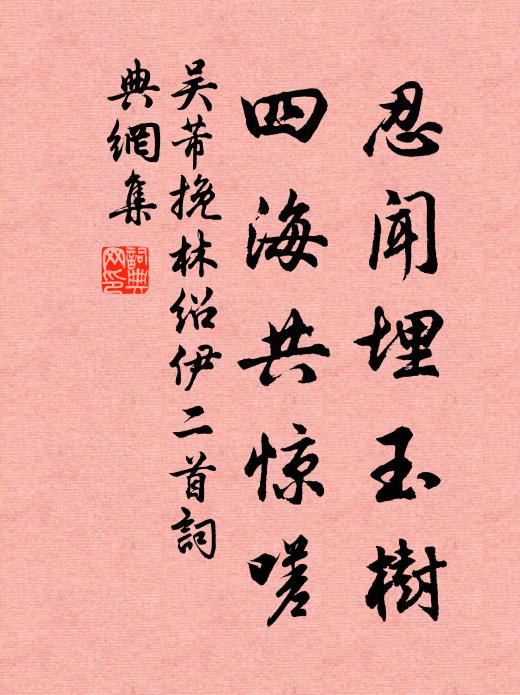 忍闻埋玉树
四海共惊嗟
吴芾挽林绍伊二首詞
典網集
詞典
网印